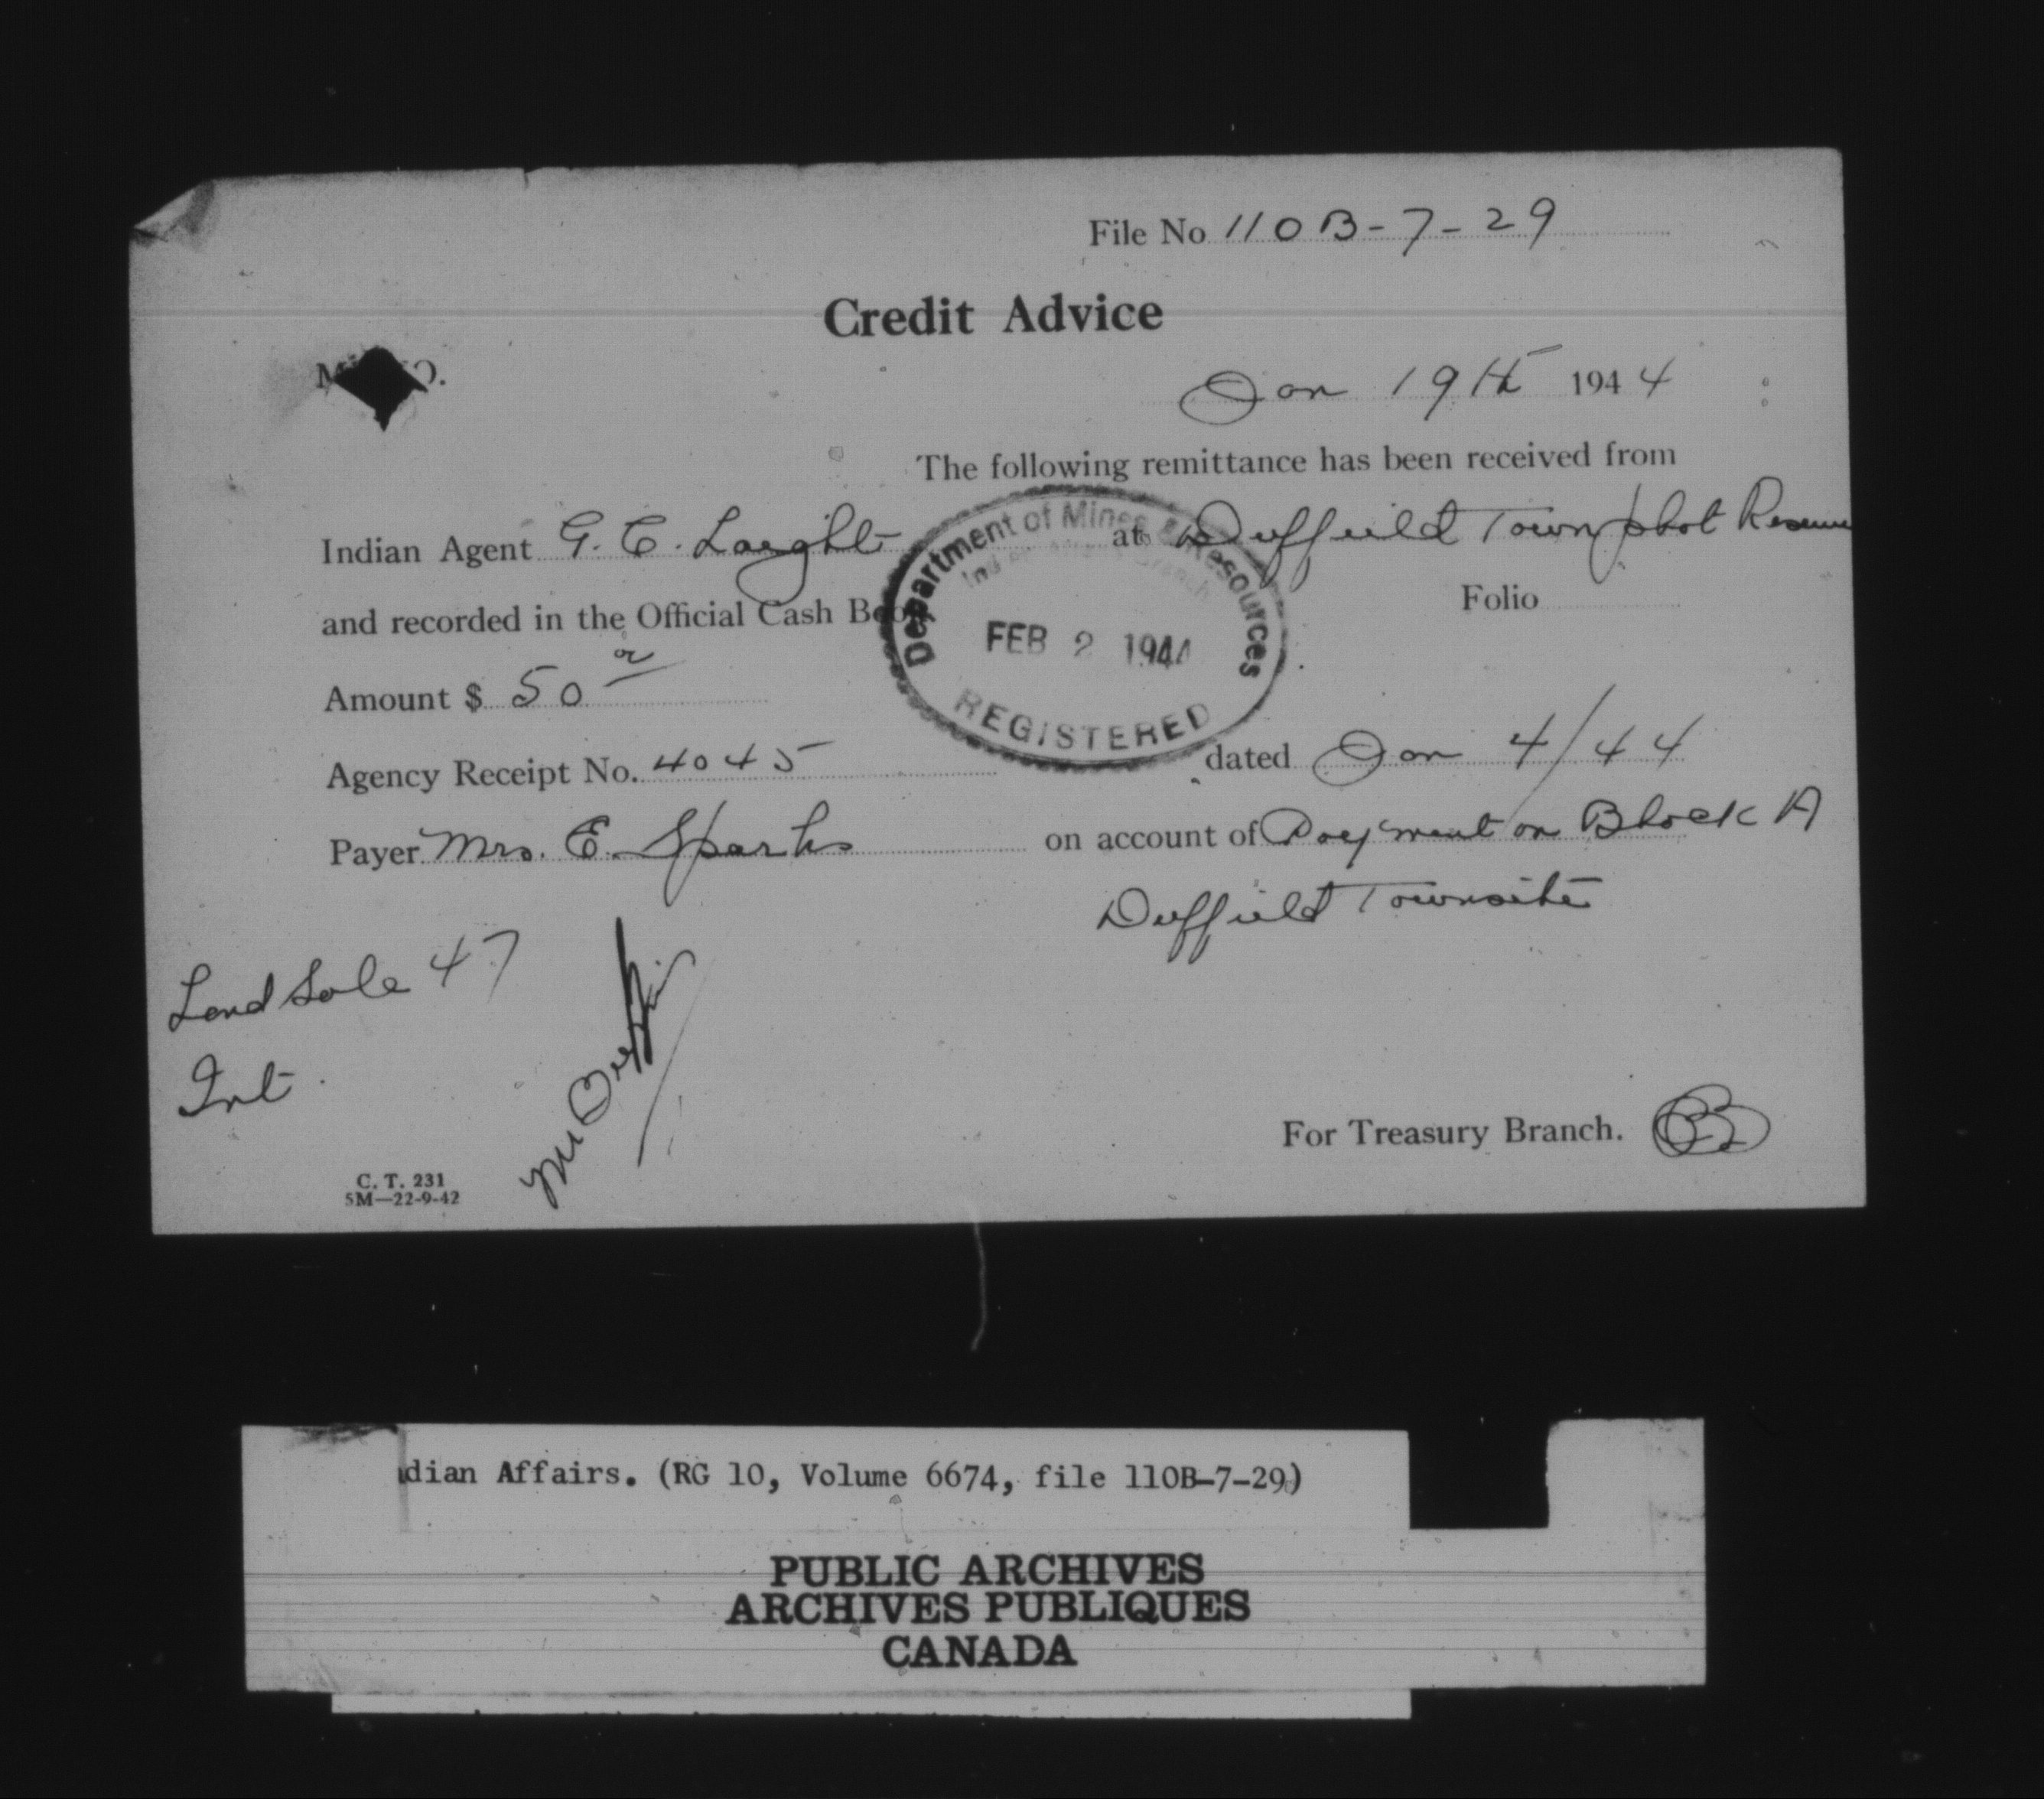 File No 110B-7-29
Credit Advice
Jan 19th 1944
The following remittance has been received from
Indian Agent G. C. Laight at Duffield Townplot Reserve
and recorded in the Official Cash Book Folio
Amount $ 50
Agency Receipt No. 4045 dated Jan 4/44
Payer Mrs. E. Sparks on account of Payment on Block A
Duffield Townsite
Department of Mines & Resources
Indian Affairs Branch
FEB 2 1944
REGISTERED
Land Sale 47
Int.
For Treasury Branch.
C. T. 231
5M—22-9-42
dian Affairs. (RG 10, Volume 6674, file 110B-7-29)
PUBLIC ARCHIVES
ARCHIVES PUBLIQUES
CANADA